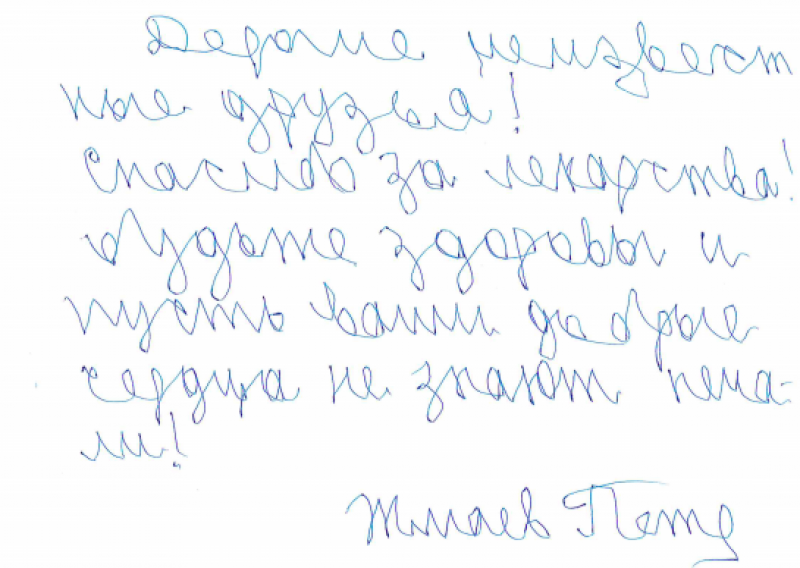 Дорогие неизвест
ные друзья!
Спасибо за лекарства!
Будьте здоровы и
пусть ваши добрые
сердца не знают печа-
ли!
Жмаев Петр